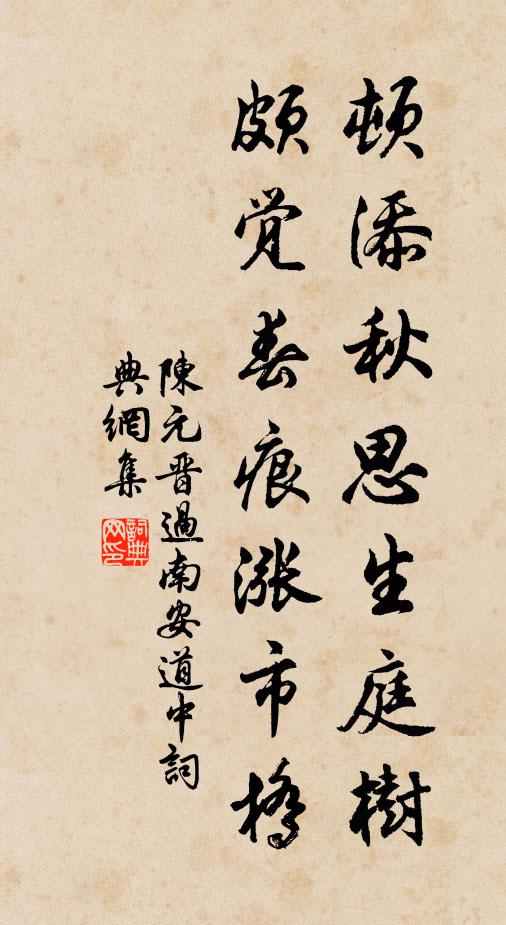 頓添秋思生庭樹
頗覚春痕漲市橋
陳元晋過南安道中詞
典網集
詞典网印